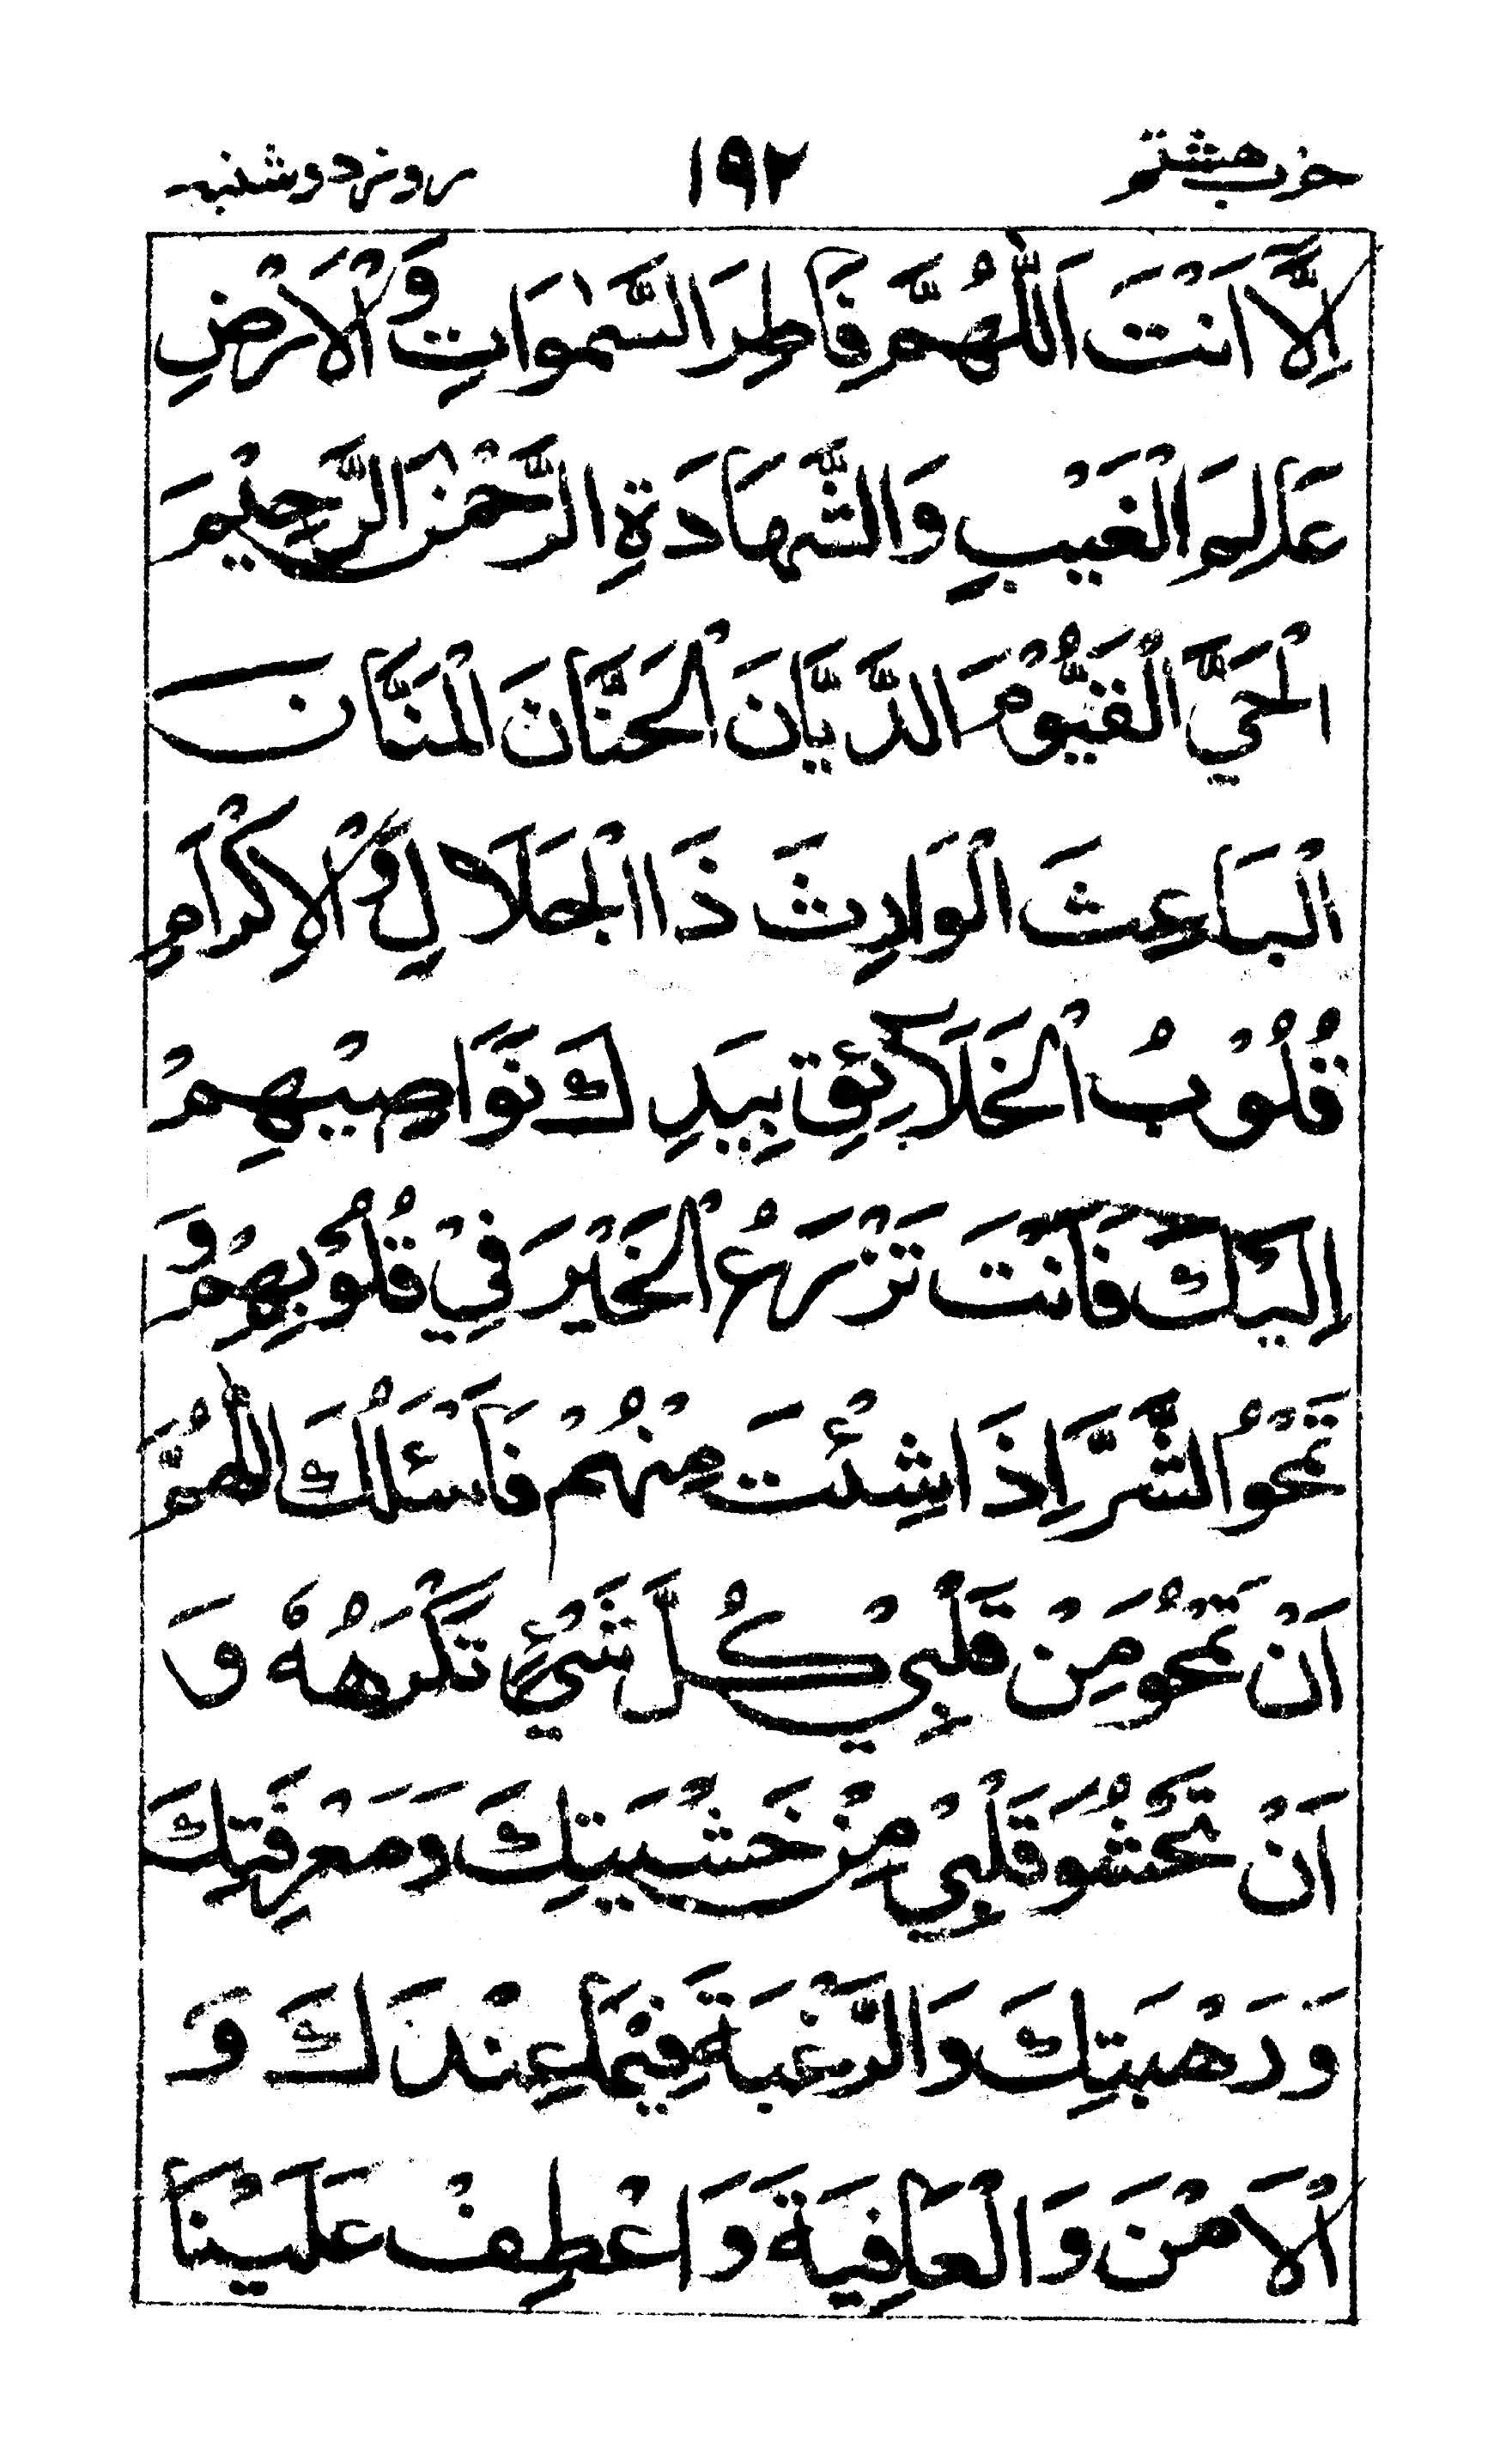 حزب هشتم ١٩٢ روز دوشنبه
اِلَّا اَنْتَ اَللّٰهُمَّ فَاطِرَ السَّمٰوَاتِ وَالْاَرْضِ
عَالِمَ الْغَيْبِ وَالشَّهَادَةِ الرَّحْمٰنَ الرَّحِيْمَ
الْحَيَّ الْقَيُّوْمَ الدَّيَّانَ الْحَنَّانَ الْمَنَّانَ
الْبَاعِثَ الْوَارِثَ ذَا الْجَلَالِ وَالْاِكْرَامِ
قُلُوْبُ الْخَلَآئِقِ بِيَدِكَ نَوَاصِيْهِمْ
اِلَيْكَ فَاَنْتَ تَزْرَعُ الْخَيْرَ فِيْ قُلُوْبِهِمْ وَ
تَمْحُوْ الشَّرَّ اِذَا شِئْتَ مِنْهُمْ فَاَسْئَلُكَ اللّٰهُمَّ
اَنْ تَمْحُوَ مِنْ قَلْبِيْ كُلَّ شَيْءٍ تَكْرَهُهٗ وَ
اَنْ تَحْشُوَ قَلْبِيْ مِنْ خَشْيَتِكَ وَمَعْرِفَتِكَ
وَرَهْبَتِكَ وَالرَّغْبَةَ فِيْمَا عِنْدَكَ وَ
الْاَمْنَ وَالْعَافِيَةَ وَاعْطِفْ عَلَيْنَا